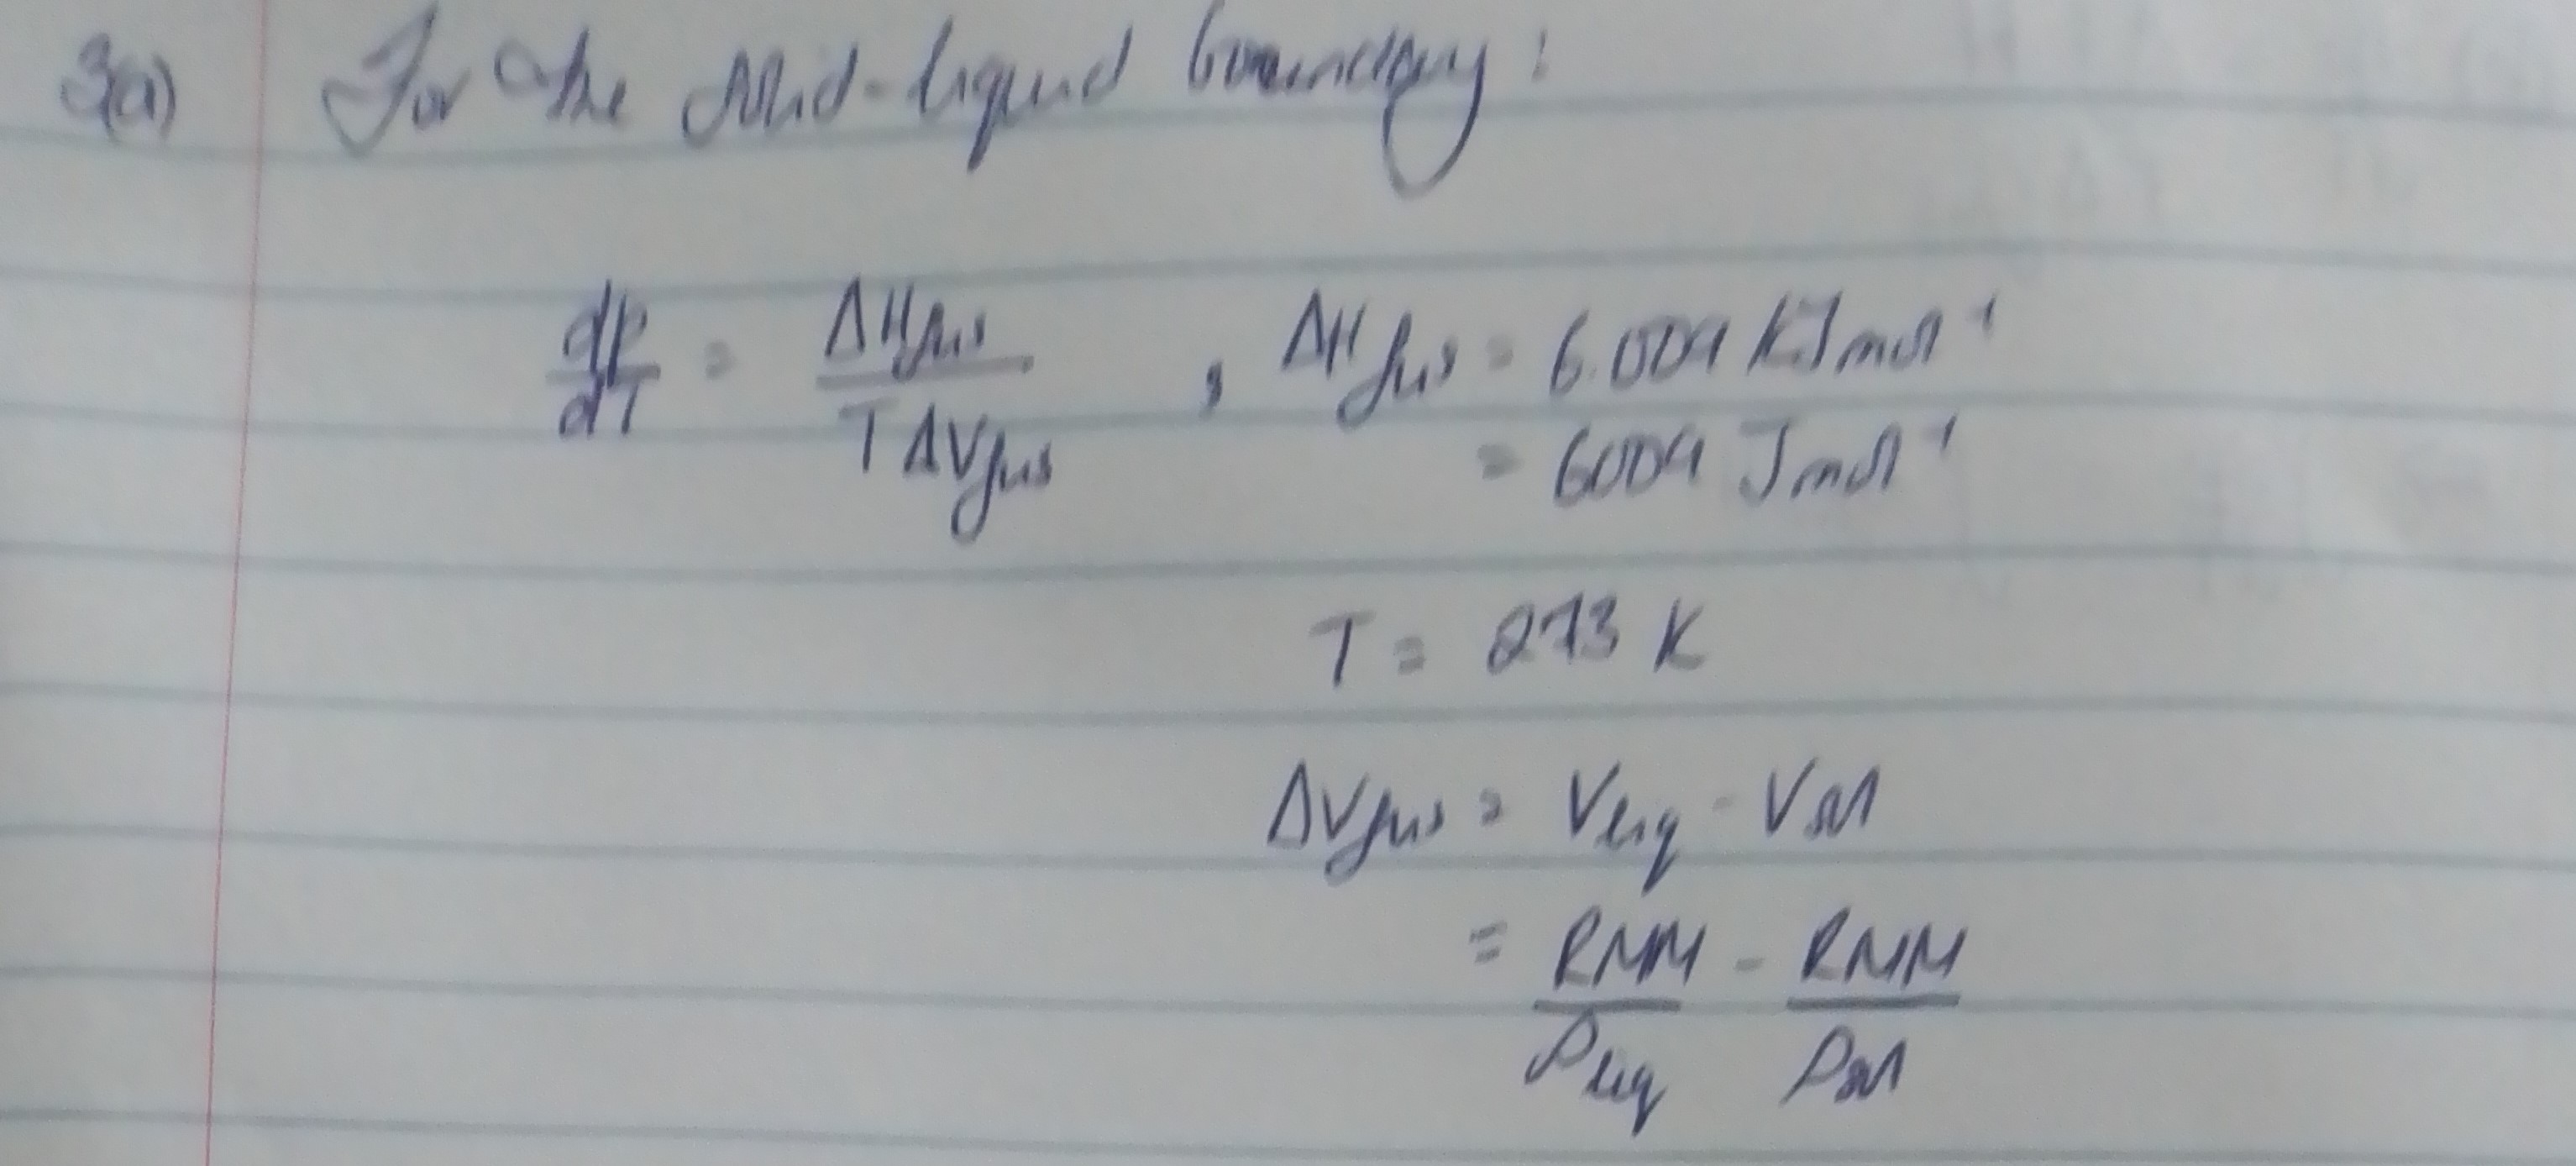 3(a) For the solid-liquid boundary:
dp/dT = ΔHfus / TΔVfus , ΔHfus = 6.009 KJmol⁻¹
= 6009 Jmol⁻¹
T = 273 K
ΔVfus = Vliq - Vsol
= RMM/ρliq - RMM/ρsol